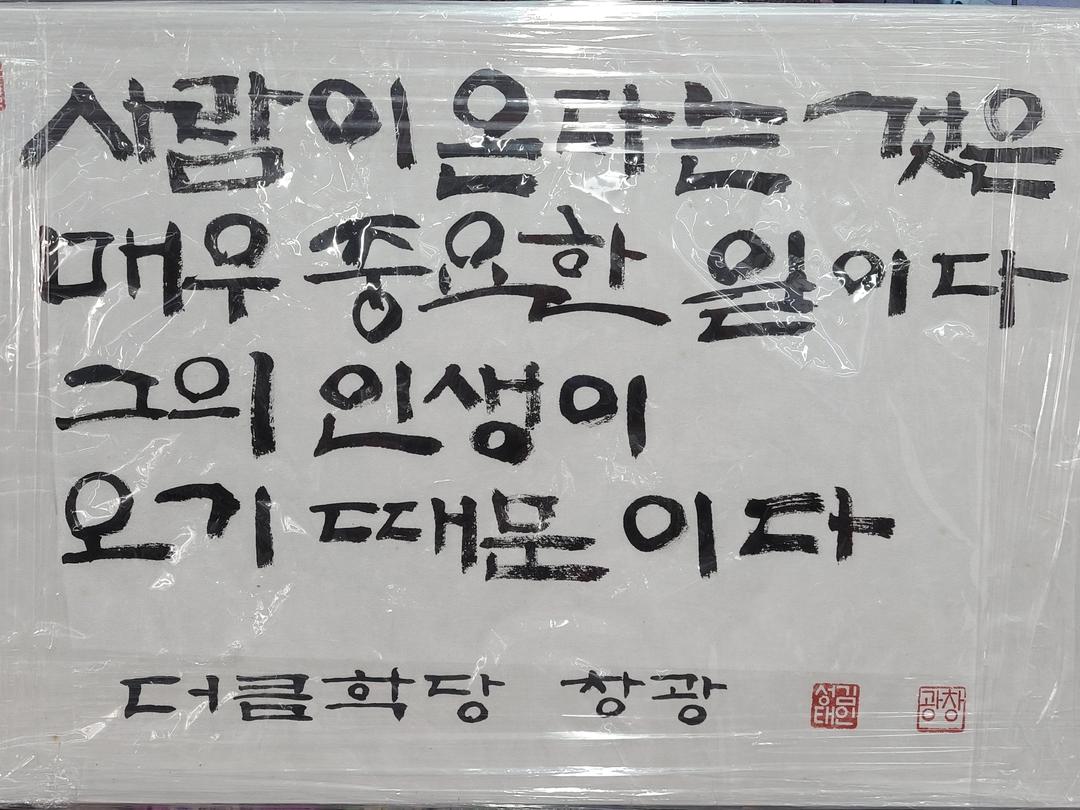 사람이 온다는 것은
매우 중요한 일이다
그의 인생이
오기 때문이다
더큼학당 창광
김성태인
창광